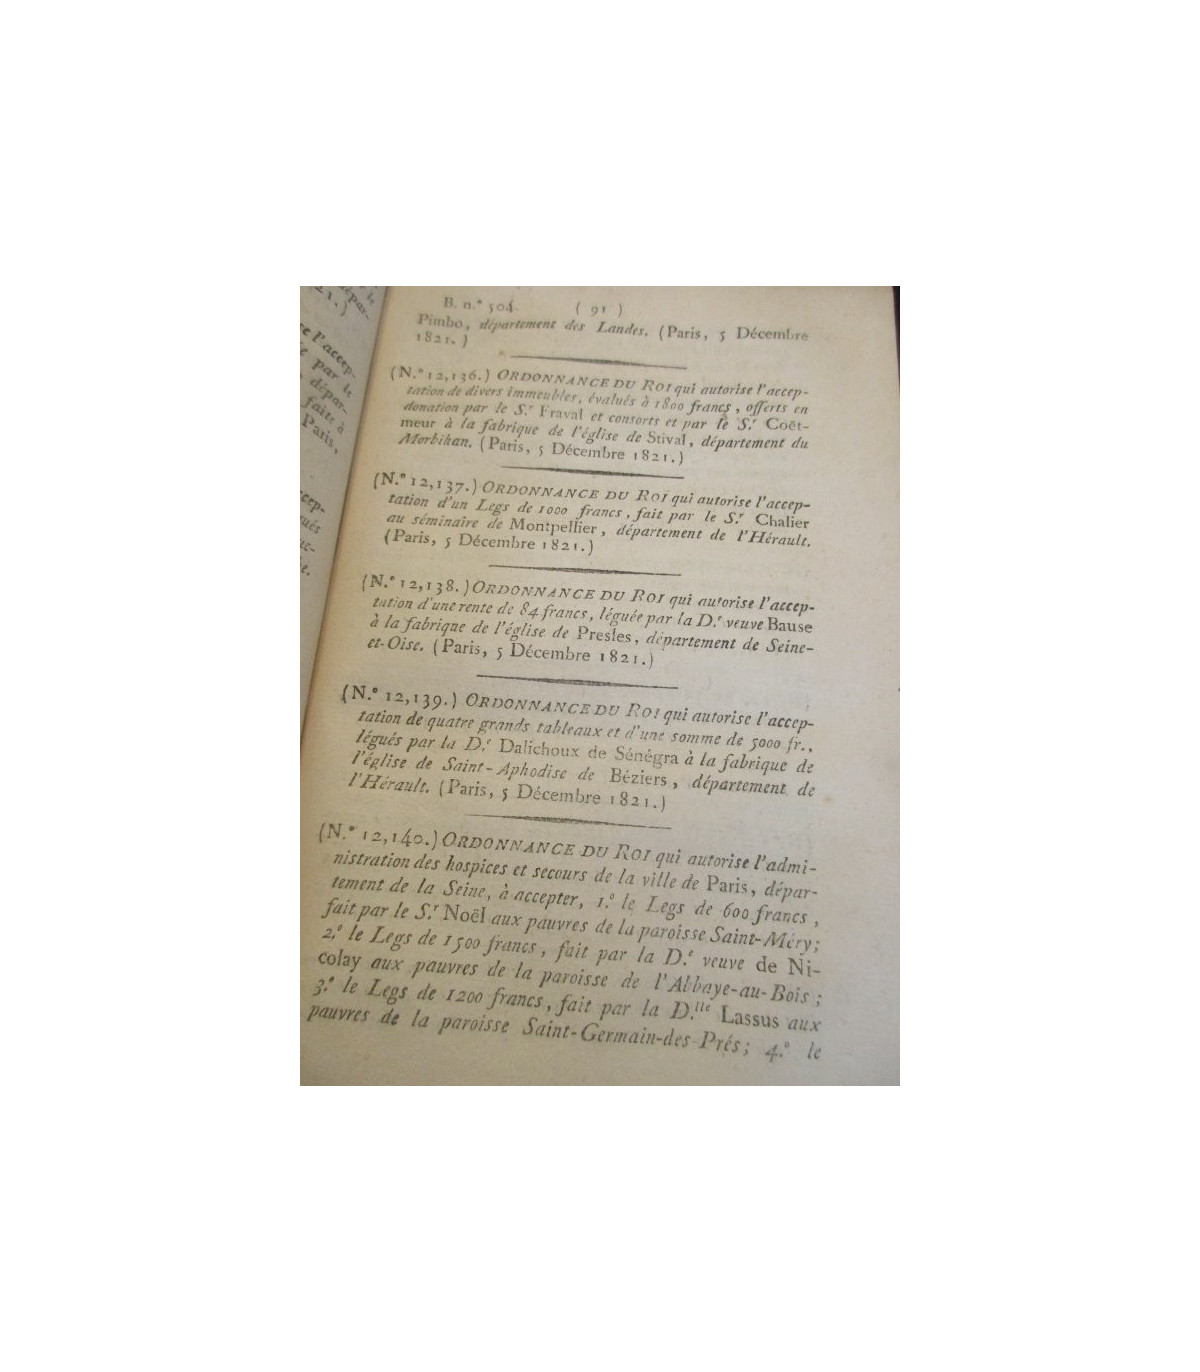 épar-
21.)
re l'accep-
le par le
, dépar-
fait à
Paris,
ccep-
qués
uc-
et.
B. n.° 504. ( 91 )
Pimbo, département des Landes. (Paris, 5 Décembre
1821.)
(N.° 12,136.) ORDONNANCE DU ROI qui autorise l'accep-
tation de divers immeubles, évalués à 1800 francs, offerts en
donation par le S.r Fraval et consorts et par le S.r Coët-
meur à la fabrique de l'église de Stival, département du
Morbihan. (Paris, 5 Décembre 1821.)
(N.° 12,137.) ORDONNANCE DU ROI qui autorise l'accep-
tation d'un Legs de 1000 francs, fait par le S.r Chalier
au séminaire de Montpellier, département de l'Hérault.
(Paris, 5 Décembre 1821.)
(N.° 12,138.) ORDONNANCE DU ROI qui autorise l'accep-
tation d'une rente de 84 francs, léguée par la D.e veuve Bause
à la fabrique de l'église de Presles, département de Seine-
et-Oise. (Paris, 5 Décembre 1821.)
(N.° 12,139.) ORDONNANCE DU ROI qui autorise l'accep-
tation de quatre grands tableaux et d'une somme de 5000 fr.,
légués par la D.e Dalichoux de Sénégra à la fabrique de
l'église de Saint-Aphodise de Béziers, département de
l'Hérault. (Paris, 5 Décembre 1821.)
(N.° 12,140.) ORDONNANCE DU ROI qui autorise l'admi-
nistration des hospices et secours de la ville de Paris, dépar-
tement de la Seine, à accepter, 1.° le Legs de 600 francs,
fait par le S.r Noël aux pauvres de la paroisse Saint-Méry;
2.° le Legs de 1500 francs, fait par la D.e veuve de Ni-
colay aux pauvres de la paroisse de l'Abbaye-au-Bois;
3.° le Legs de 1200 francs, fait par la D.lle Lassus aux
pauvres de la paroisse Saint-Germain-des-Prés; 4.° le